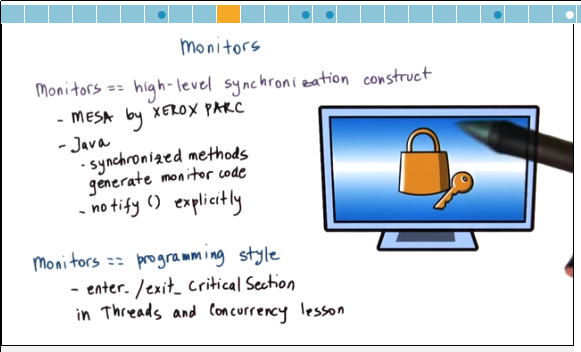 Monitors
Monitors == high-level synchronization construct
- MESA by XEROX PARC
- Java
- synchronized methods
generate monitor code
- notify () explicitly
Monitors == programming style
- enter_/exit_ Critical Section
in Threads and Concurrency lesson